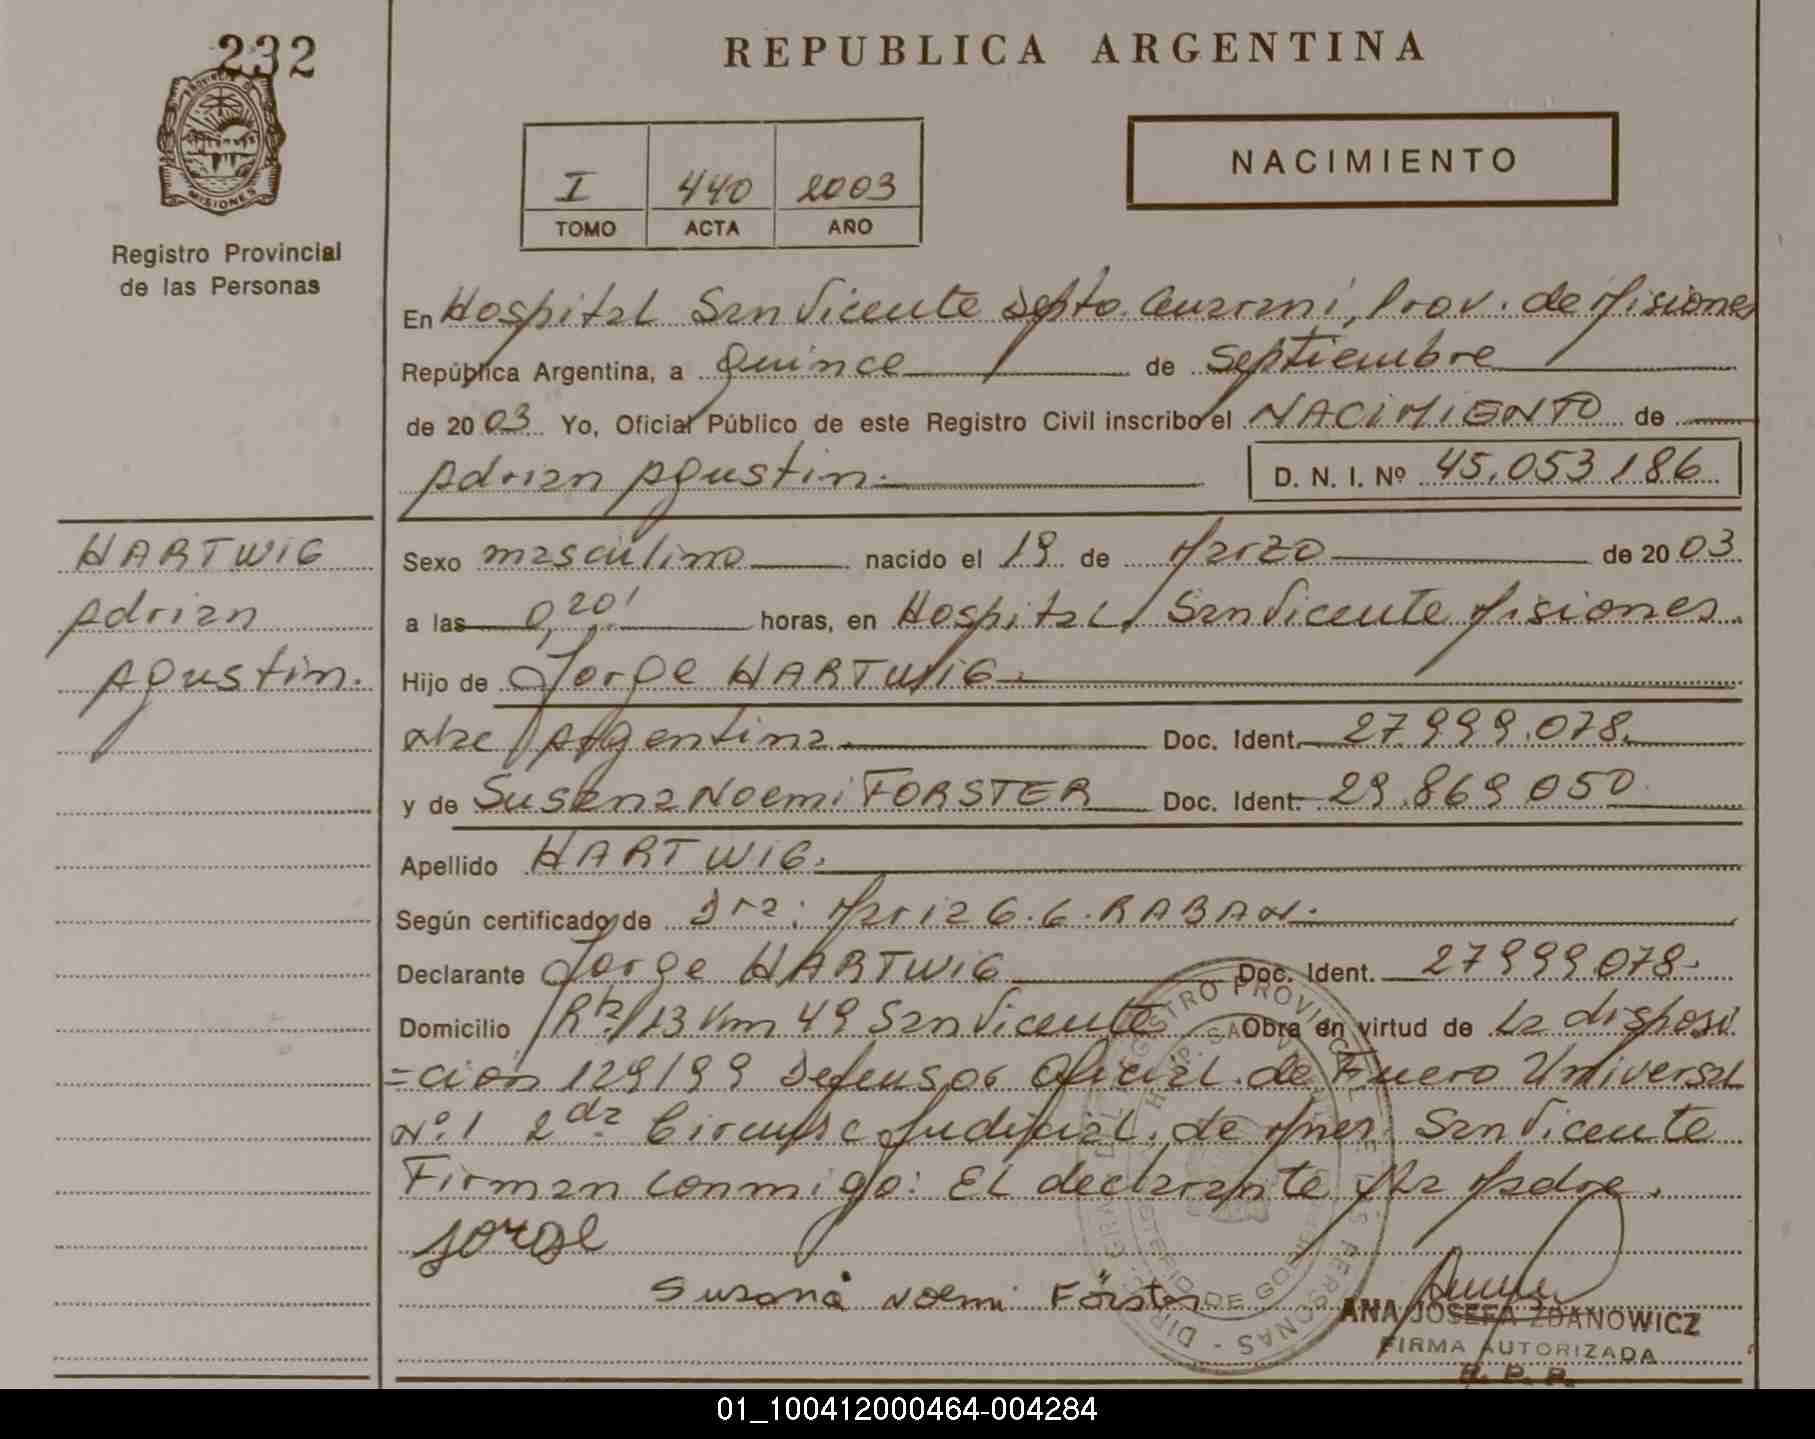 232
REPUBLICA ARGENTINA
PROVINCIA DE
MISIONES
Registro Provincial
de las Personas
I 440 2003
TOMO ACTA AÑO
NACIMIENTO
En Hospital San Vicente Depto. Guarani, Prov. de Misiones
República Argentina, a quince de Septiembre
de 2003 Yo, Oficial Público de este Registro Civil inscribo el NACIMIENTO de
Adrian Agustin. D. N. I. Nº 45.053.186
HARTWIG
Adrian
Agustin.
Sexo masculino nacido el 19 de Marzo de 2003
a las 0,20' horas, en Hospital, San Vicente Misiones.
Hijo de Jorge HARTWIG.
Nac Argentina Doc. Ident. 27.999.078.
y de Susana Noemi FORSTER Doc. Ident. 29.869.050
Apellido HARTWIG.
Según certificado de Dra: Maria G. G. RABAN.
Declarante Jorge HARTWIG Doc. Ident. 27999078.
Domicilio Rta. 13 Km 49 San Vicente Obra en virtud de la disposi
=cion 129/99 Defensor Oficial de Fuero Universal
Nº.1 2da. Circunsc Judicial, de Mnes San Vicente
Firman conmigo: El declarante y la Madre.
Jorge
Susana Noemi Förster
ANA JOSEFA ZDANOWICZ
FIRMA AUTORIZADA
R. P. P.
01_100412000464-004284